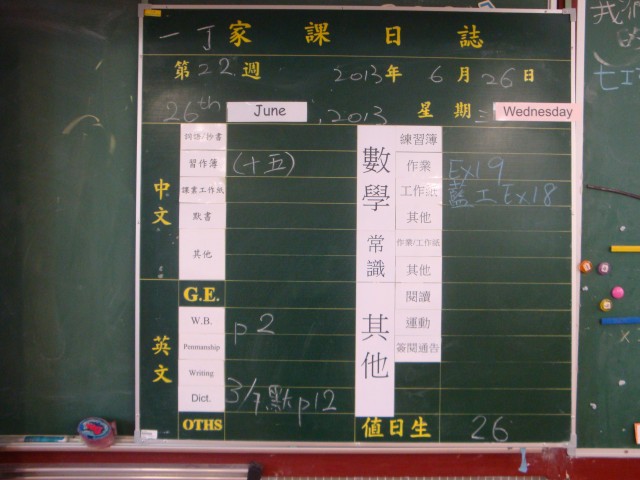 一丁家課日誌
第22週 2013年6月26日
26th June , 2013 星期三 Wednesday
中文
詞語/抄書
習作簿 (十五)
課業工作紙
默書
其他
英文
G.E.
W.B. p2
Penmanship
Writing
Dict. 3/7默p12
OTHS
數學
練習簿
作業 Ex19
工作紙 藍工Ex18
其他
常識
作業/工作紙
其他
其他
閱讀
運動
簽閱通告
值日生 26
我們
的
七工